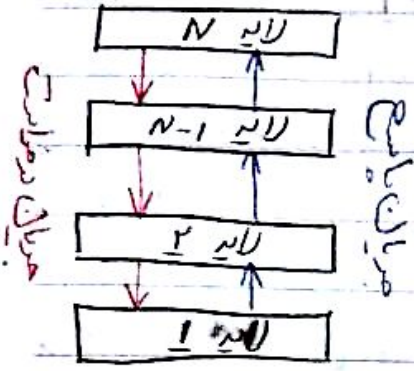 لایه N
لایه N-1
لایه ۲
لایه 1
جریان درخواست
جریان پاسخ